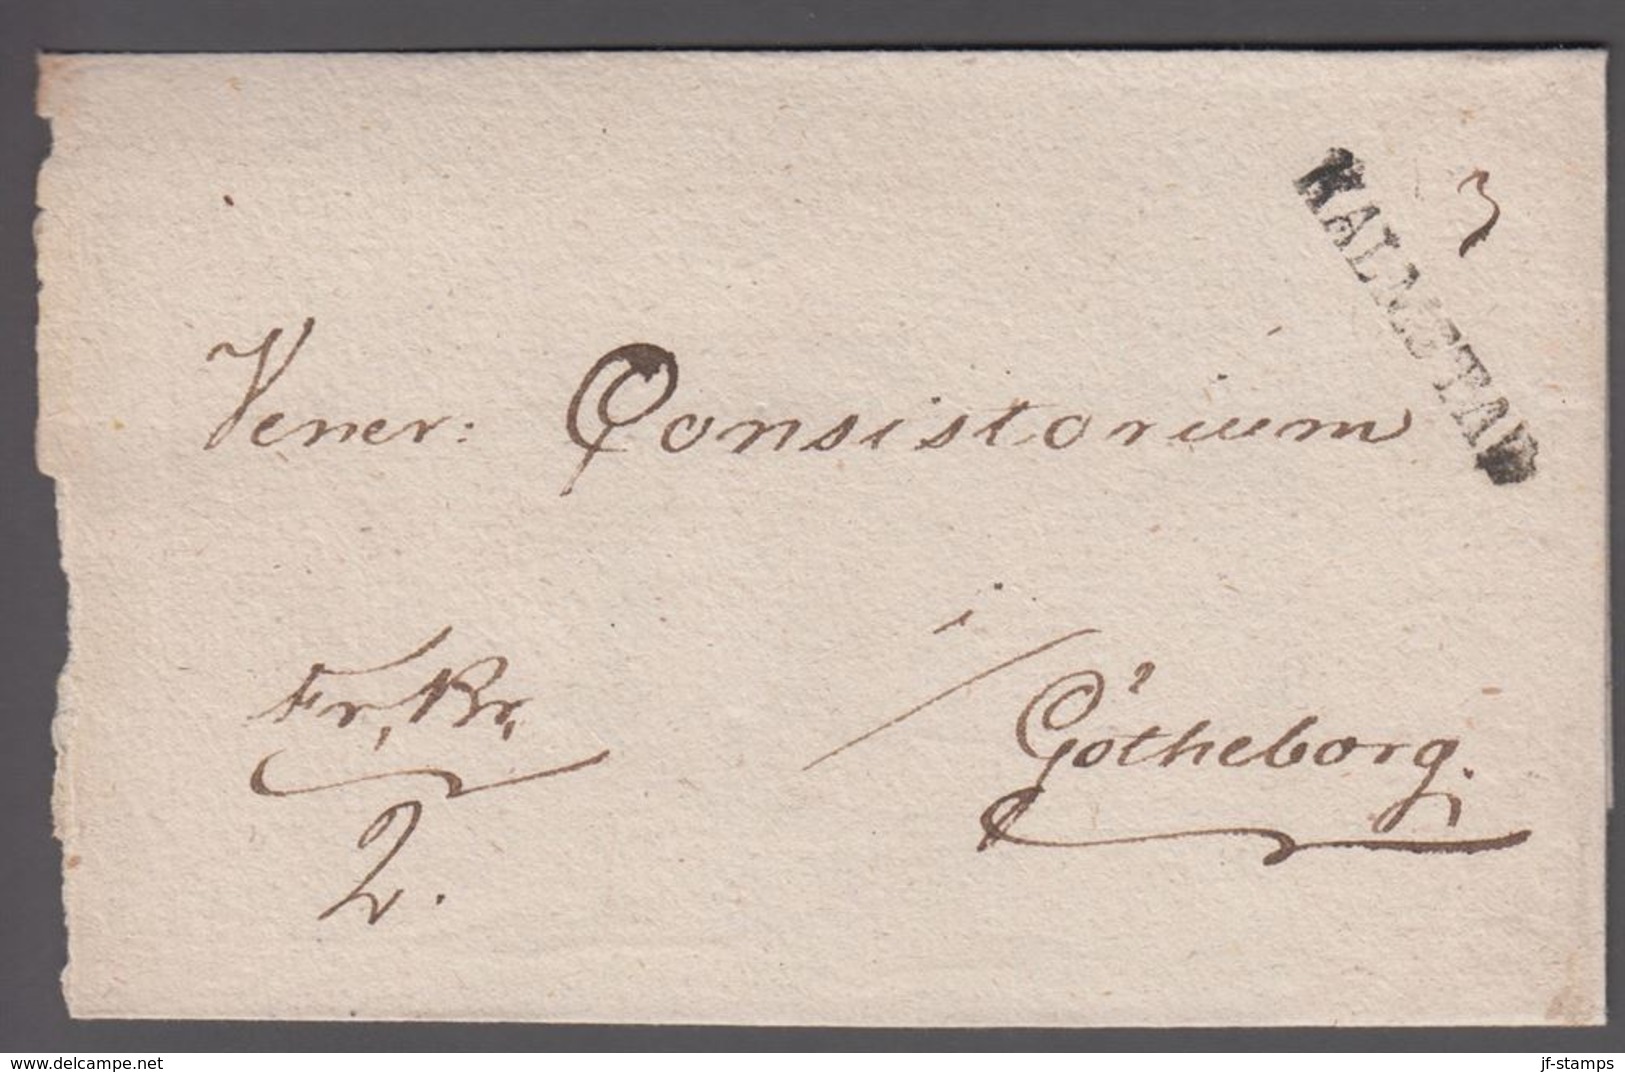 HALMSTAD
3
Vener: Consistorium
i
Fr, Br,
/ Götheborg.
2.
delcampe.net
jf-stamps